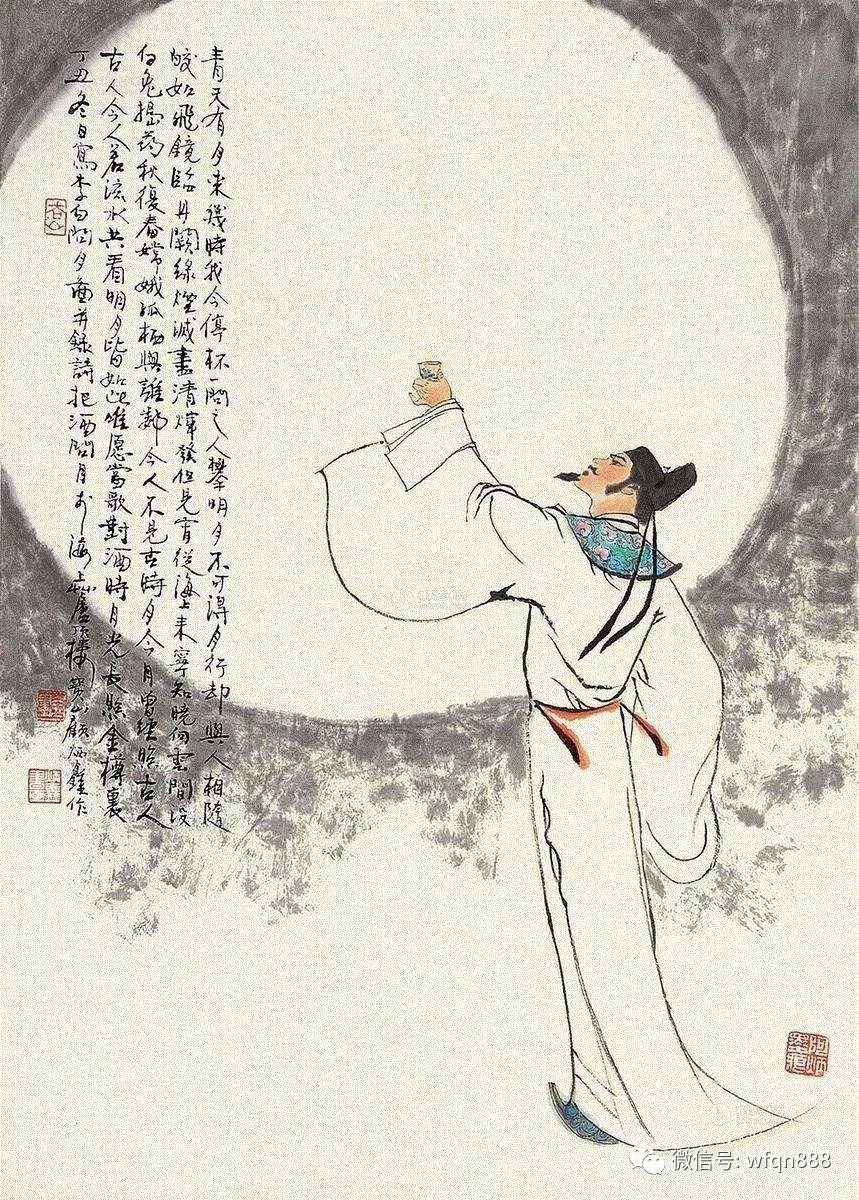 青天有月来幾時我今停杯一問之人攀明月不可得月行却與人相隨
皎如飛鏡臨丹闕緑煙滅盡清輝發但見宵從海上来寧知曉向雲間没
白兔搗藥秋復春嫦娥孤栖與誰鄰今人不見古時月今月曾經照古人
古人今人若流水共看明月皆如此唯愿當歌對酒時月光長照金樽裏
丁丑冬日寫李白問月圖并録詩把酒問月於海上樓寶山顧炳鑫作
微信号: wfqn888